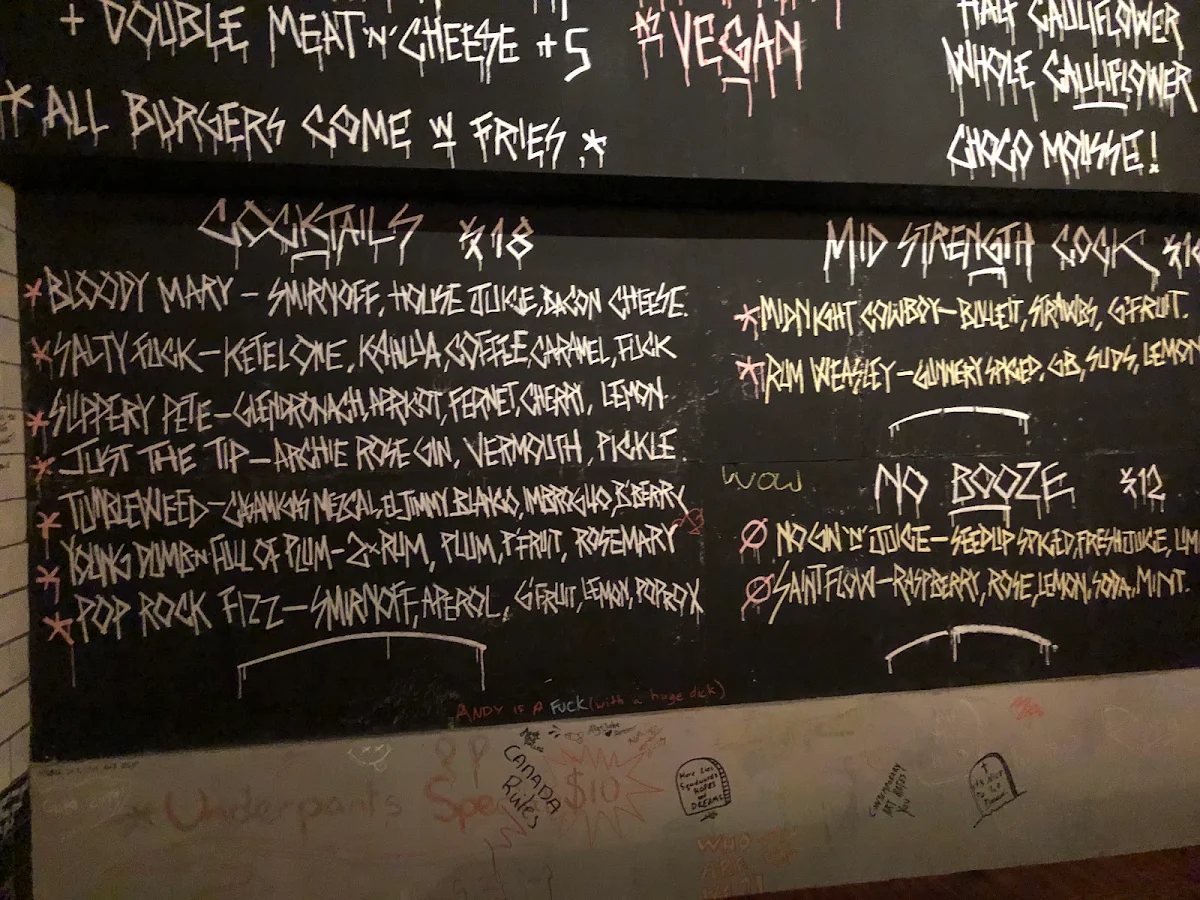 + DOUBLE MEAT 'N' CHEESE +5
* ALL BURGERS COME W FRIES *
* VEGAN
HALF CAULIFLOWER
WHOLE CAULIFLOWER
CHOCO MOUSSE!
COCKTAILS $18
* BLOODY MARY – SMIRNOFF, HOUSE JUICE, BACON CHEESE.
* SALTY FUCK – KETEL ONE, KAHLUA, COFFEE, CARAMEL, FUCK
* SLIPPERY PETE – GLENDRONACH, APRICOT, FERNET, CHERRY, LEMON
* JUST THE TIP – ARCHIE ROSE GIN, VERMOUTH, PICKLE
* TUMBLEWEED – CASAMIGAS MEZCAL, EL JIMMY BLANCO, IMBROGLIO, B'BERRY
* YOUNG DUMB N FULL OF PLUM – 2xRUM, PLUM, P'FRUIT, ROSEMARY
* POP ROCK FIZZ – SMIRNOFF, APEROL, G'FRUIT, LEMON, POP ROX
MID STRENGTH COCK
* MIDNIGHT COWBOY – BULLEIT, STRAWBS, G'FRUIT.
* RUM WEASLEY – GUNNERY SPICED, GB, SUDS, LEMON
WOW
NO BOOZE $12
Ø NO GIN 'N' JUICE – SEEDLIP SPICED, FRESH JUICE,
Ø SAINT FLOW – RASPBERRY, ROSE, LEMON, SODA, MINT.
ANDY IS A FUCK (with a huge dick)
* Underpants Spe
$10
CANADA
Rules
Here Lies
HOPES
DREAMS
WHO
ARE